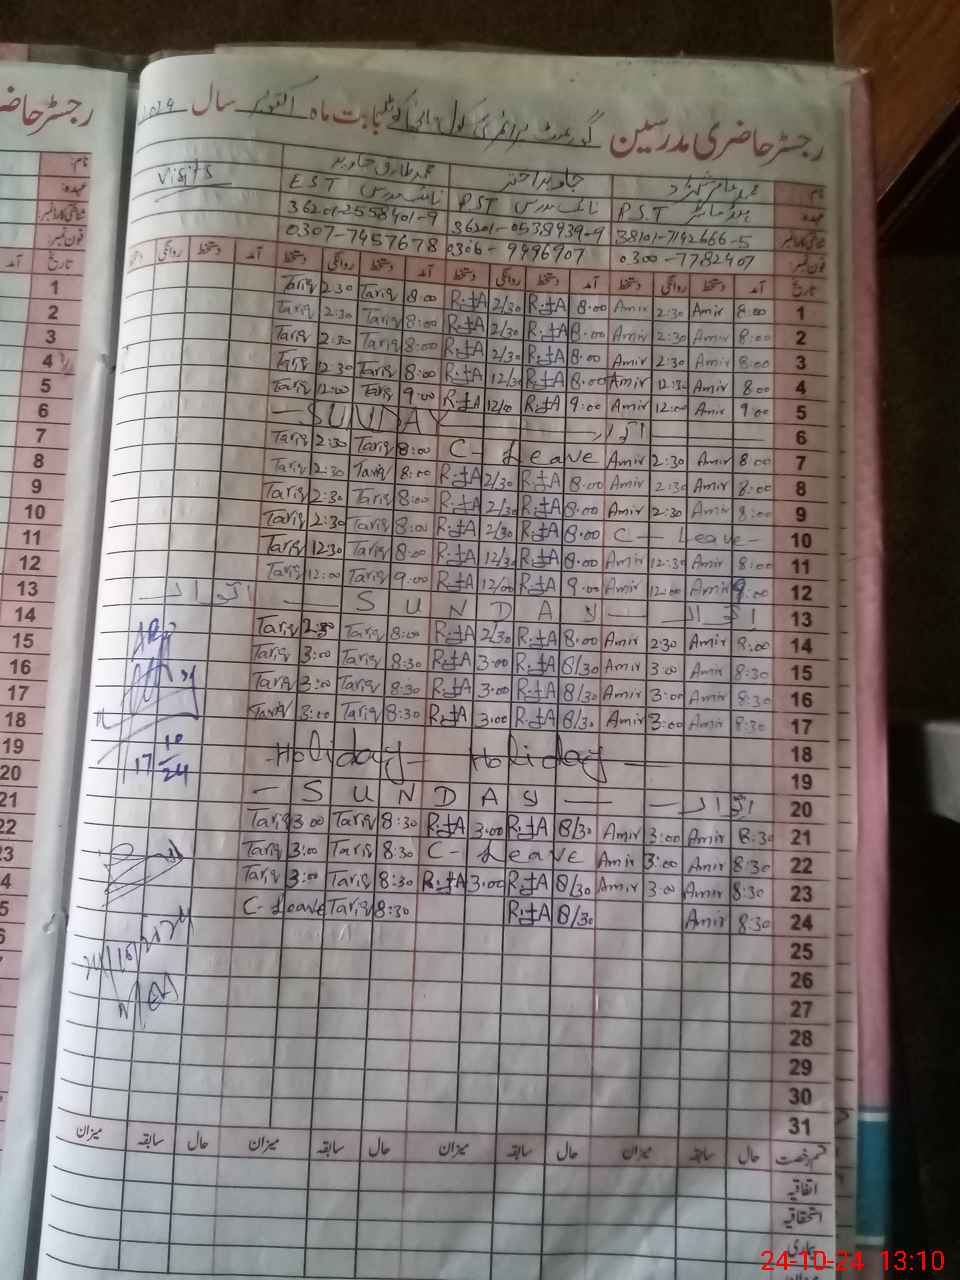 رجسٹر حاضری مدرسین گورنمنٹ پرائمری سکول بابت ماہ اکتوبر سال
نام
محمد عامر شہزاد
جاوید اختر
محمد طارق جاوید
Visits
عہدہ
P.S.T
نائب مدرس PST
نائب مدرس EST
شناختی کارڈ نمبر
38101-7142666-5
36201-0538939-9
36201-2558401-9
فون نمبر
0300-7782407
0306-9496907
0307-7457678
تاریخ آمد دستخط روانگی دستخط آمد دستخط روانگی دستخط آمد دستخط روانگی دستخط آمد دستخط روانگی
1 8:00 Amir 2:30 Amir 8:00 R.A 2/30 R.A 8:00 Tariq 2:30 Tariq
2 8:00 Amir 2:30 Amir 8:00 R.A 2/30 R.A 8:00 Tariq 2:30 Tariq
3 8:00 Amir 2:30 Amir 8:00 R.A 2/30 R.A 8:00 Tariq 2:30 Tariq
4 8:00 Amir 12:30 Amir 8:00 R.A 12/30 R.A 8:00 Tariq 12:30 Tariq
5 9:00 Amir 12:00 Amir 9:00 R.A 12/00 R.A 9:00 Tariq 12:00 Tariq
6 اتوار SUNDAY
7 8:00 Amir 2:30 Amir C-Leave 8:00 Tariq 2:30 Tariq
8 8:00 Amir 2:30 Amir 8:00 R.A 2/30 R.A 8:00 Tariq 2:30 Tariq
9 8:00 Amir 2:30 Amir 8:00 R.A 2/30 R.A 8:00 Tariq 2:30 Tariq
10 C-Leave 8:00 R.A 2/30 R.A 8:00 Tariq 2:30 Tariq
11 8:00 Amir 12:30 Amir 8:00 R.A 12/30 R.A 8:00 Tariq 12:30 Tariq
12 9:00 Amir 12:00 Amir 9:00 R.A 12/00 R.A 9:00 Tariq 12:00 Tariq
13 اتوار SUNDAY اتوار
14 8:00 Amir 2:30 Amir 8:00 R.A 2/30 R.A 8:00 Tariq 2:30 Tariq
15 8:30 Amir 3:00 Amir 8/30 R.A 3:00 R.A 8:30 Tariq 3:00 Tariq
16 8:30 Amir 3:00 Amir 8/30 R.A 3:00 R.A 8:30 Tariq 3:00 Tariq
17 8:30 Amir 3:00 Amir 8/30 R.A 3:00 R.A 8:30 Tariq 3:00 Tariq
18 Holiday - Holiday
17 10 24
19
20 اتوار SUNDAY
21 8:30 Amir 3:00 Amir 8/30 R.A 3:00 R.A 8:30 Tariq 3:00 Tariq
22 8:30 Amir 3:00 Amir C-Leave 8:30 Tariq 3:00 Tariq
23 8:30 Amir 3:00 Amir 8/30 R.A 3:00 R.A 8:30 Tariq 3:00 Tariq
24 8:30 Amir 8/30 R.A 8:30 Tariq C-Leave
25
26
27
28
29
30
31
قسم رخصت حال سابقہ میزان حال سابقہ میزان حال سابقہ میزان حال سابقہ میزان
اتفاقیہ
استحقاقیہ
بیماری
رجسٹر حاضر
نام:
عہدہ:
شناختی کارڈ نمبر
فون نمبر:
تاریخ آمد
1
2
3
4
5
6
7
8
9
10
11
12
13
14
15
16
17
18
19
20
21
22
23
24-10-24 13:10